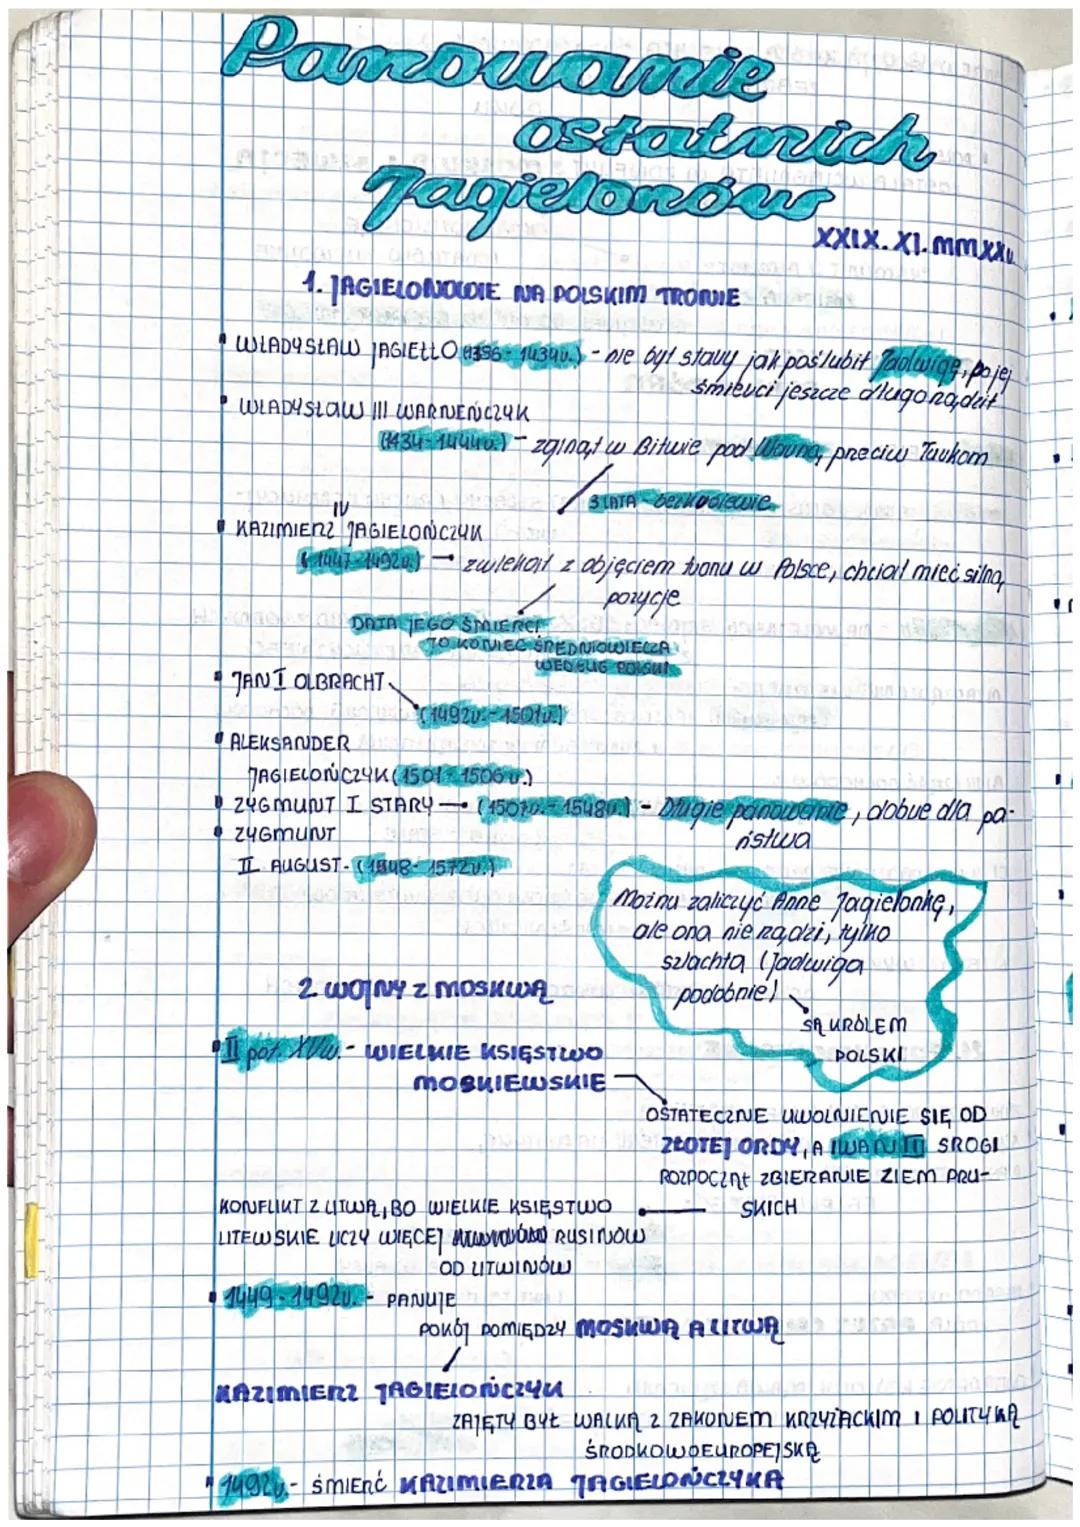 Panowanie
ostatnich
Jagielonów
XXIX. XI. MMXX
1. JAGIELONOWIE NA POLSKIM TRONIE
WŁADYSŁAW JAGIEŁŁO (1386-1434r.) - nie był stary jak poślubił Jadwigę, po jej
śmierci jeszcze długo rządził
WŁADYSŁAW III WARNEŃCZYK
(1434-1444r.) - zginął w Bitwie pod Warną, przeciw Turkom
3 LATA bezkrólewie
IV
KAZIMIERZ JAGIELOŃCZYK
(1447-1492r.) - zwlekał z objęciem tronu w Polsce, chciał mieć silną
pozycje
DATA JEGO ŚMIERCI
TO KONIEC ŚREDNIOWIECZA
WEDŁUG POLSKI
JAN I OLBRACHT
(1492r.-1501r.)
ALEKSANDER
JAGIELOŃCZYK (1501-1506r.)
ZYGMUNT I STARY - (1507r.-1548r.) - Długie panowanie, dobre dla pa-
ństwa
ZYGMUNT
II AUGUST - (1548-1572r.)
Można zaliczyć Anne Jagielonkę,
ale ona nie rządzi, tylko
szlachta (Jadwiga
podobnie)
SĄ KRÓLEM
POLSKI
2. WOJNY Z MOSKWĄ
II poł. XVw. - WIELKIE KSIĘSTWO
MOSKIEWSKIE
OSTATECZNE UWOLNIENIE SIĘ OD
ZŁOTEJ ORDY, A IWAN III SROGI
ROZPOCZĄŁ ZBIERANIE ZIEM PRU-
SKICH
KONFLIKT Z LITWĄ, BO WIELKIE KSIĘSTWO
LITEWSKIE LICZY WIĘCEJ RUSINÓW
OD LITWINÓW
1449-1492r. - PANUJE
POKÓJ POMIĘDZY MOSKWĄ A LITWĄ
KAZIMIERZ JAGIELOŃCZYK
ZAJĘTY BYŁ WALKĄ Z ZAKONEM KRZYŻACKIM I POLITYKĄ
ŚRODKOWOEUROPEJSKĄ
1492r. - ŚMIERĆ KAZIMIERZA JAGIELOŃCZYKA